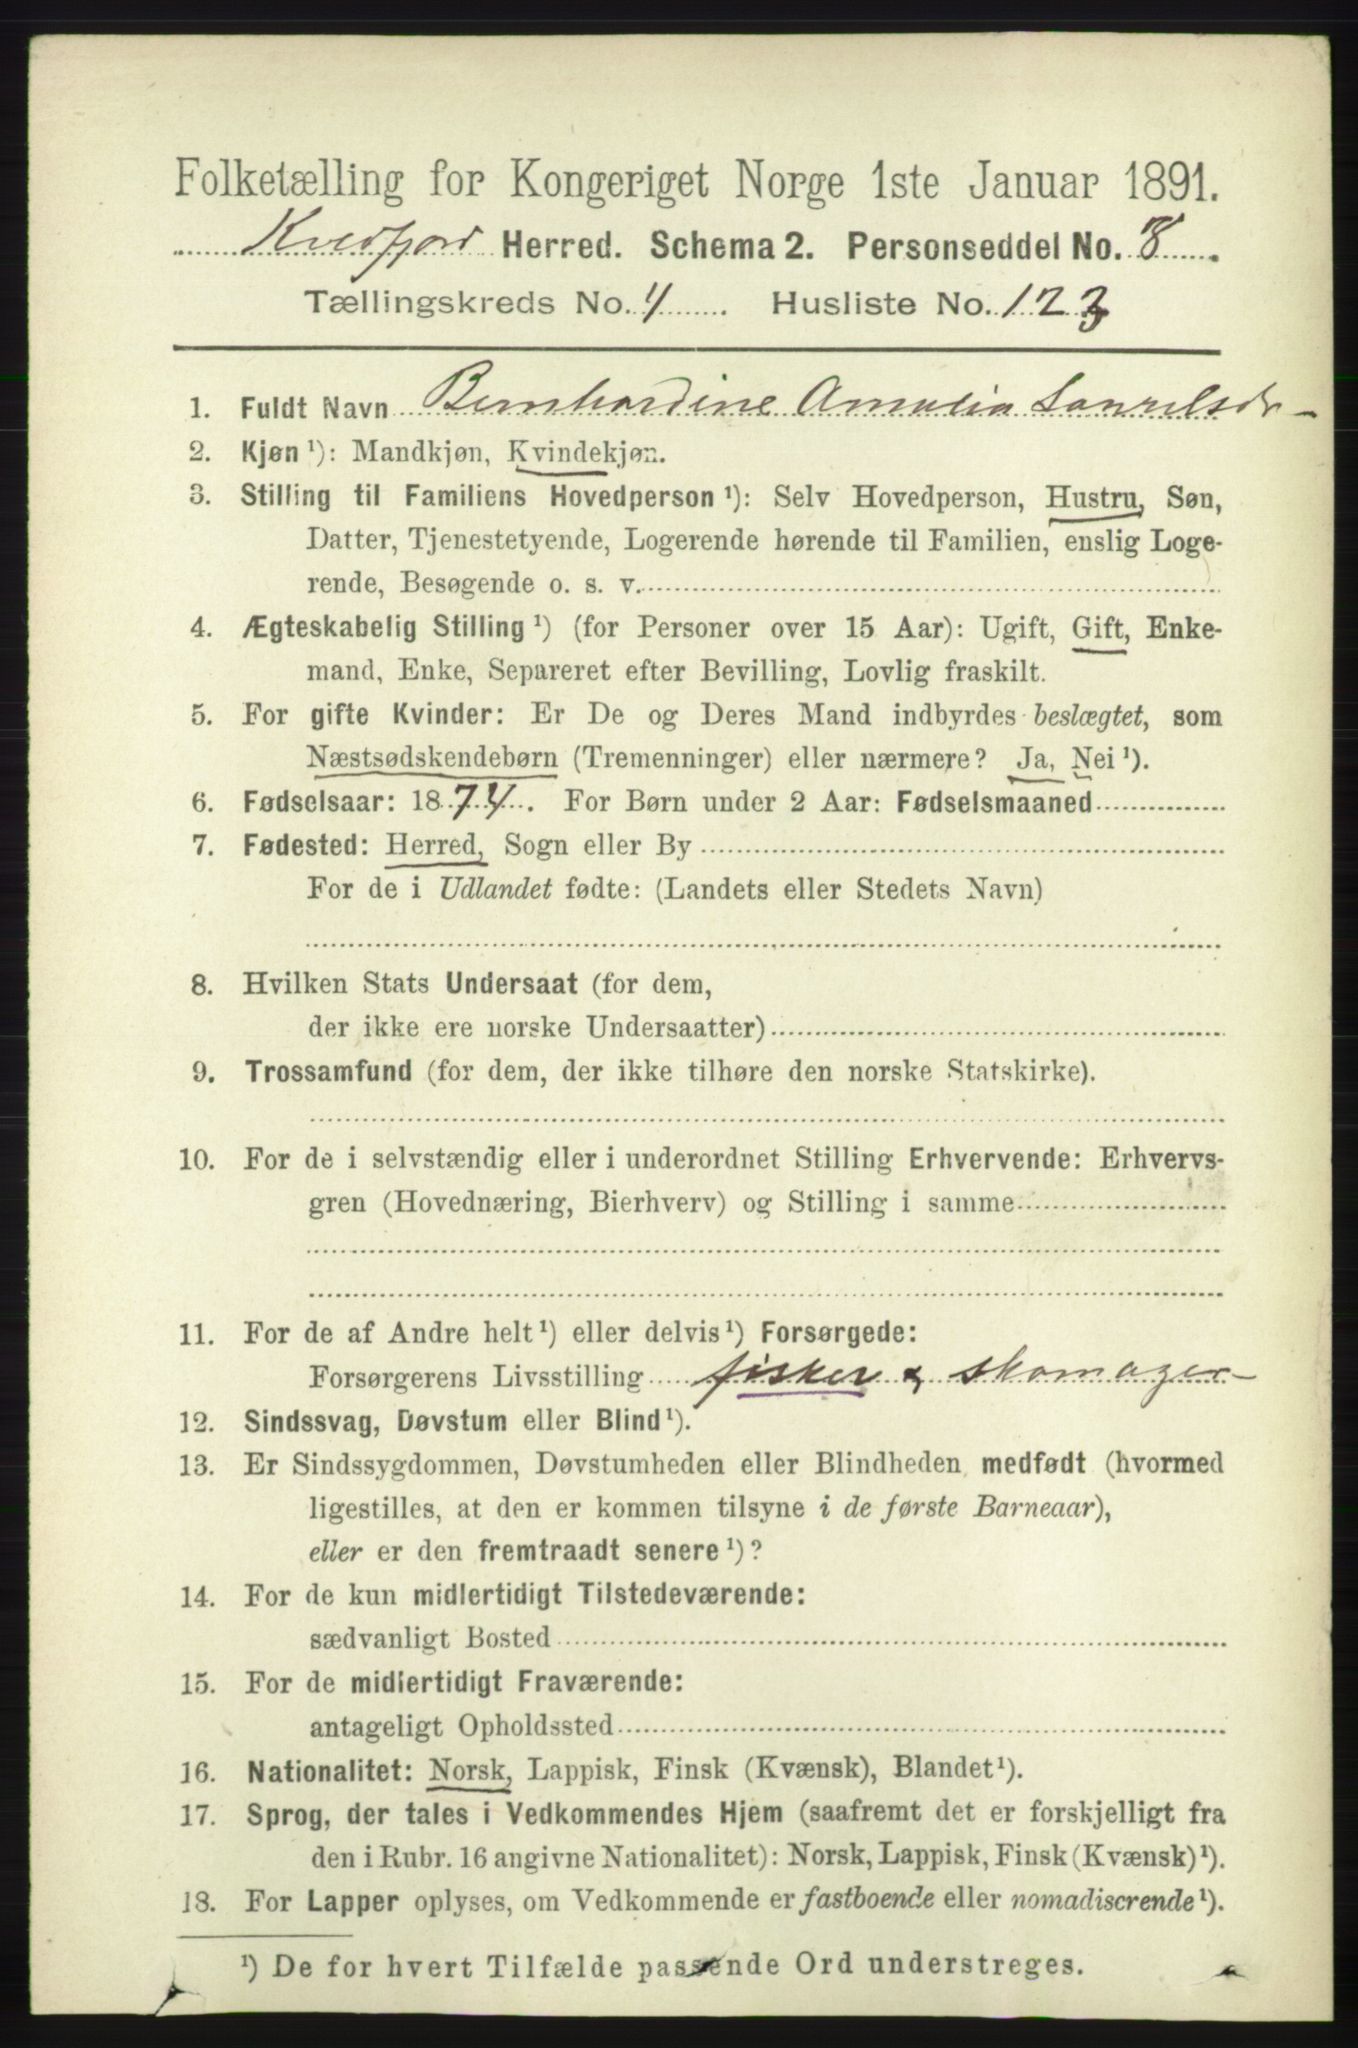 Folketælling for Kongeriget Norge 1ste Januar 1891.
Kvedfjord Herred. Schema 2. Personseddel No. 8.
Tællingskreds No. 4. Husliste No. 123
1. Fuldt Navn Bernhardine Amalia
2. Kjøn ¹): Mandkjøn, Kvindekjøn.
3. Stilling til Familiens Hovedperson ¹): Selv Hovedperson, Hustru, Søn,
Datter, Tjenestetyende, Logerende hørende til Familien, enslig Loge-
rende, Besøgende o. s. v.
4. Ægteskabelig Stilling ¹) (for Personer over 15 Aar): Ugift, Gift, Enke-
mand, Enke, Separeret efter Bevilling, Lovlig fraskilt.
5. For gifte Kvinder: Er De og Deres Mand indbyrdes beslægtet, som
Næstsødskendebørn (Tremenninger) eller nærmere? Ja, Nei ¹).
6. Fødselsaar: 1874. For Børn under 2 Aar: Fødselsmaaned
7. Fødested: Herred, Sogn eller By
For de i Udlandet fødte: (Landets eller Stedets Navn)
8. Hvilken Stats Undersaat (for dem,
der ikke ere norske Undersaatter)
9. Trossamfund (for dem, der ikke tilhøre den norske Statskirke).
10. For de i selvstændig eller i underordnet Stilling Erhvervende: Erhvervs-
gren (Hovednæring, Bierhverv) og Stilling i samme
11. For de af Andre helt ¹) eller delvis ¹) Forsørgede:
Forsørgerens Livsstilling fisker & skomager
12. Sindssvag, Døvstum eller Blind ¹).
13. Er Sindssygdommen, Døvstumheden eller Blindheden medfødt (hvormed
ligestilles, at den er kommen tilsyne i de første Barneaar),
eller er den fremtraadt senere ¹)?
14. For de kun midlertidigt Tilstedeværende:
sædvanligt Bosted
15. For de midlertidigt Fraværende:
antageligt Opholdssted
16. Nationalitet: Norsk, Lappisk, Finsk (Kvænsk), Blandet ¹).
17. Sprog, der tales i Vedkommendes Hjem (saafremt det er forskjelligt fra
den i Rubr. 16 angivne Nationalitet): Norsk, Lappisk, Finsk (Kvænsk) ¹).
18. For Lapper oplyses, om Vedkommende er fastboende eller nomadiserende ¹).
¹) De for hvert Tilfælde passende Ord understreges.